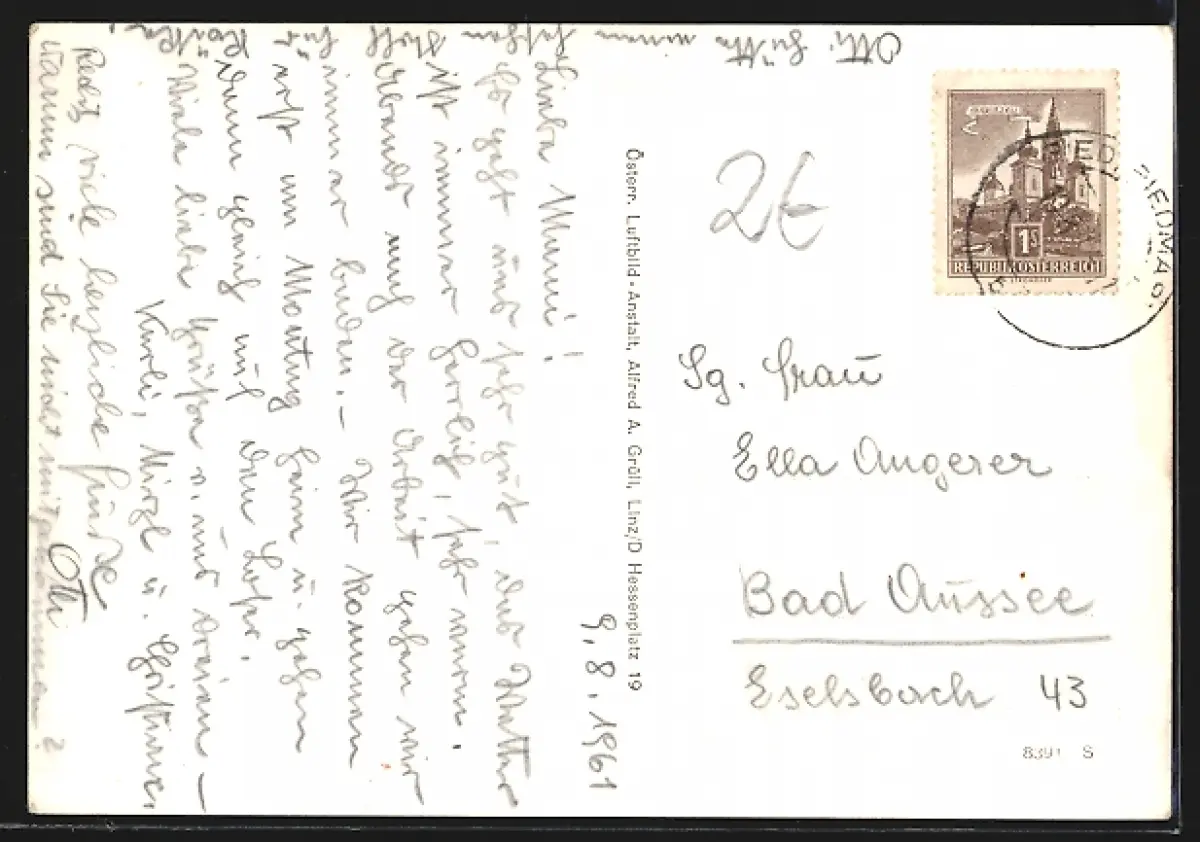 9. 8. 1961
Liebe Mimmi!
Es geht uns sehr gut, das Wetter
ist immer herrlich, sehr warm.
Abends nach der Arbeit gehen wir
immer baden. – Wir kommen
erst am Montag heim u. gehen
dann gleich auf den Loser.
Viele liebe Grüße u. uns dreien –
Kurli, Mirzl u.
Recht viele herzliche Grüße Otti
Warum sind Sie nicht mitgekommen?
Otti hätte einen
Österr. Luftbild-Anstalt, Alfred A. Grüll, Linz/D Hessenplatz 19
2€
MARIAZELL
1S
REPUBLIK ÖSTERREICH
Sg. Frau
Ella Angerer
Bad Aussee
Eselsbach 43
8391 S